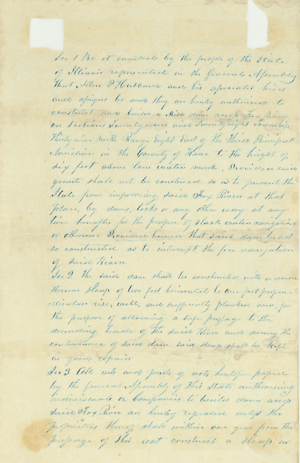 Sec 1 Be it enacted by the people of the State
of Illinois represented in the General Assembly
That P Hubbard and his associates heirs
and assigns be and they are hereby authorized to
construct and a Dam across Fox River
on Sections and
nine North Range eight East of the Third Principal
Meridian in the County of Kane to the height of
six feet above low water mark Provided
shall not be construed so as to prevent the
State from improving said Fox River at that
place, by dams locks or any other way at any
time for the purpose of slack water navigation
or Provided however that said dam be not
so constructed as to interrupt the free navigation
of said River
Sec 2 The said dam shall be constructed with a
slope of two feet horizontal to one foot
rise, well and sufficiently planked over for
the purpose of affording a safe passage to the
descending of the said River and during the
continuance of said dam said slope shall be kept
in good repair
Sec 3 All acts and parts of acts heretofore passed
by the General Assembly of this State authorizing
individuals or Companies to build dams across
said Fox River are hereby repealed unless the
proprietors thereof shall within one year from the
passage of this act construct a slope or